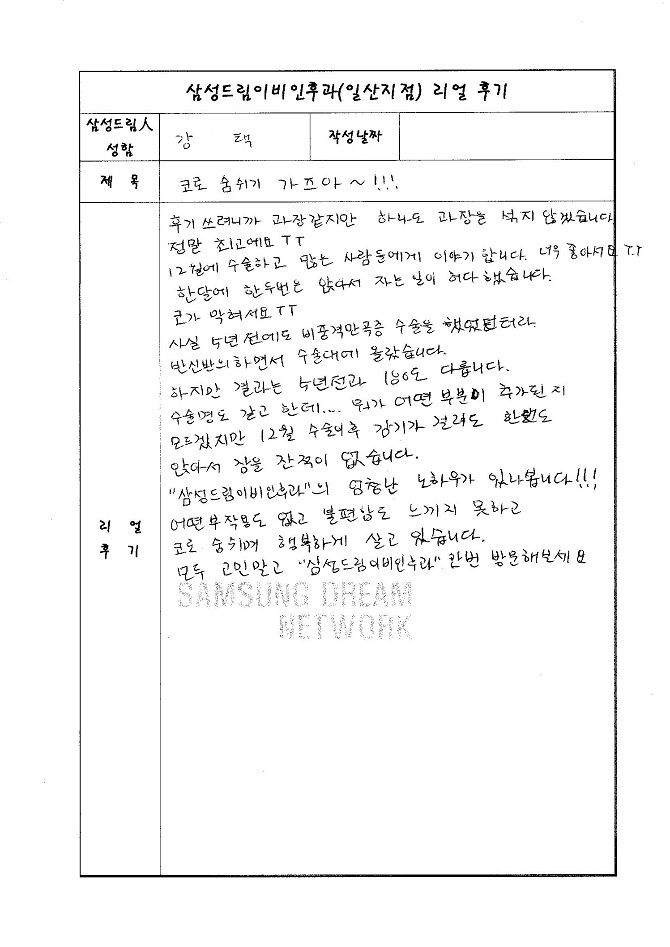 삼성드림이비인후과(일산지점) 리얼 후기
삼성드림人
성함
강 택
작성날짜
제 목
코로 숨쉬기 가즈아~!!!
리 얼
후 기
후기 쓰려니까 과장같지만 하나도 과장을 섞지 않겠습니다
정말 최고에요 TT
12월에 수술하고 많은 사람들에게 이야기 합니다. 너무 좋아서요 T.T
한달에 한두번은 앉아서 자는 일이 허다했습니다.
코가 막혀서요 TT
사실 5년 전에도 비중격만곡증 수술을 했었던터라
반신반의 하면서 수술대에 올랐습니다.
하지만 결과는 5년전과 180도 다릅니다.
수술명도 같고 한데... 뭐가 어떤 부분이 추가된지
모르겠지만 12월 수술이후 감기가 걸려도 한번도
앉아서 잠을 잔적이 없습니다.
"삼성드림이비인후과"의 엄청난 노하우가 있나봅니다!!!
어떤부작용도 없고 불편함도 느끼지 못하고
코로 숨쉬며 행복하게 살고 있습니다.
모두 고민말고 "삼성드림이비인후과" 한번 방문해보세요
SAMSUNG DREAM
NETWORK